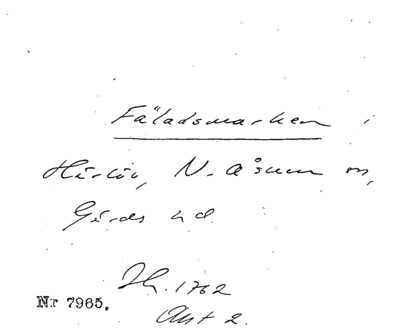 Fäladsmarken i
Härlöv, N. Åsum sn,
Gärds hd
Sk. 1762
Akt 2.
Nr 7965.